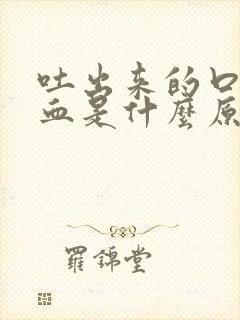 吐出来的口
血是什麼原
羅錦堂